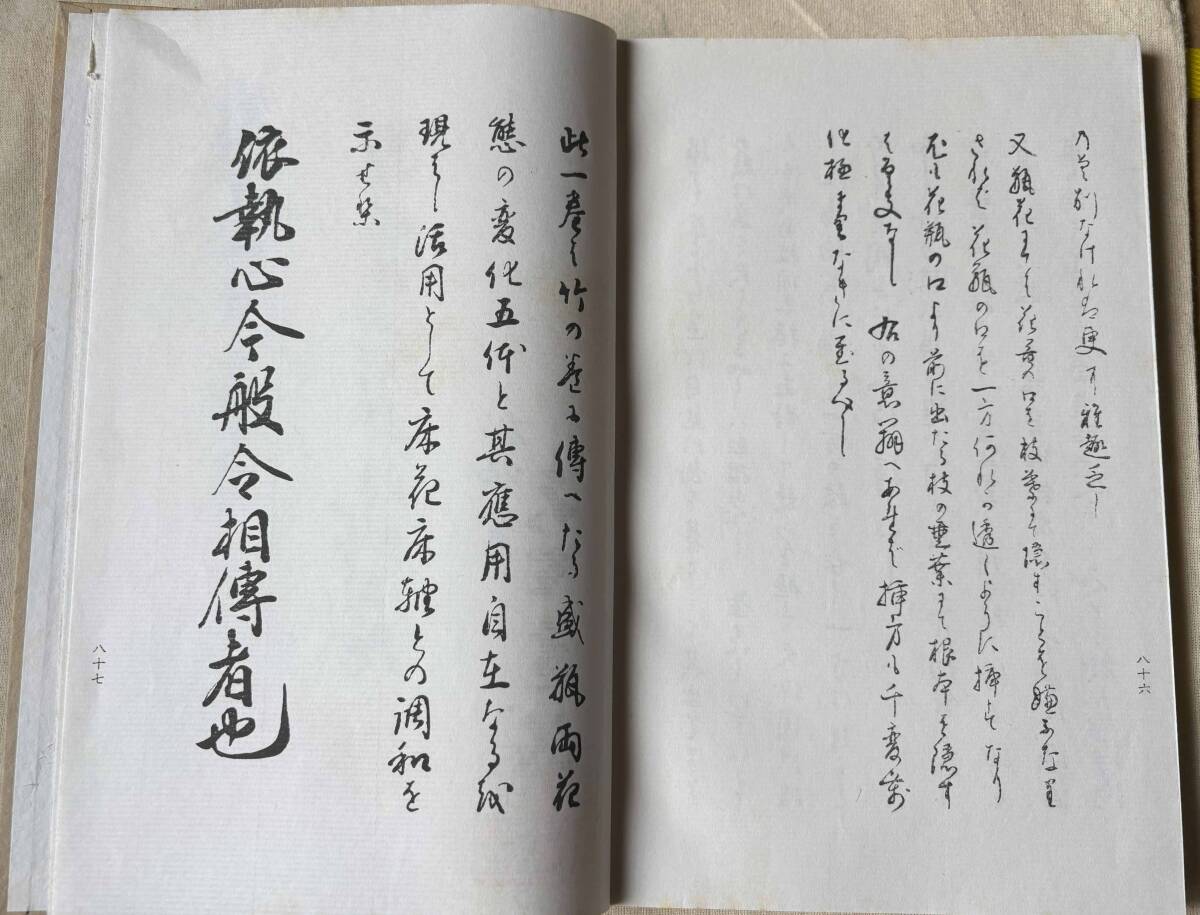 の差別なければ更に雅趣乏し
又瓶花にては花器の口を枝葉にて隠すことを嫌ふなり
されど花瓶の口を一方何れか透くように挿すなり
尤も花瓶の口より前に出たる枝の垂葉にて根本を隠す
は支なし 右の意翔へあれば挿方も千変万
化極まりなきに至るべし
八十六
此一巻は竹の巻に傳へたる盛瓶両花
態の変化五体と其應用自在なるを
現はし活用として床花床軸との調和を
示せ里
依執心今般令相傳者也
八十七